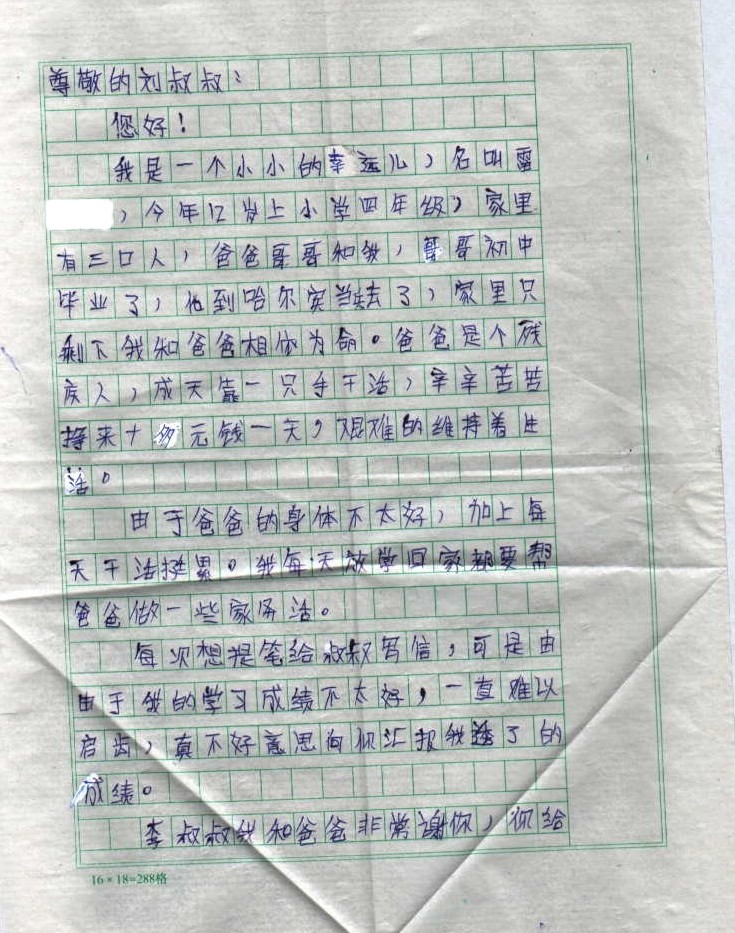 尊敬的刘叔叔：
您好！
我是一个小小的幸运儿，名叫雷
，今年12岁上小学四年级，家里
有三口人，爸爸哥哥和我，哥哥初中
毕业了，他到哈尔宾当去了，家里只
剩下我和爸爸相依为命。爸爸是个残
疾人，成天靠一只手干活，辛辛苦苦
挣来十多元钱一天，艰难的维持着生
活。
由于爸爸的身体不太好，加上每
天干活挺累。我每天放学回家都要帮
爸爸做一些家务活。
每次想提笔给叔叔写信，可是由
由于我的学习成绩不太好，一直难以
启齿，真不好意思向你汇报我了的
成绩。
李叔叔我和爸爸非常谢你，你给
16×18=288格